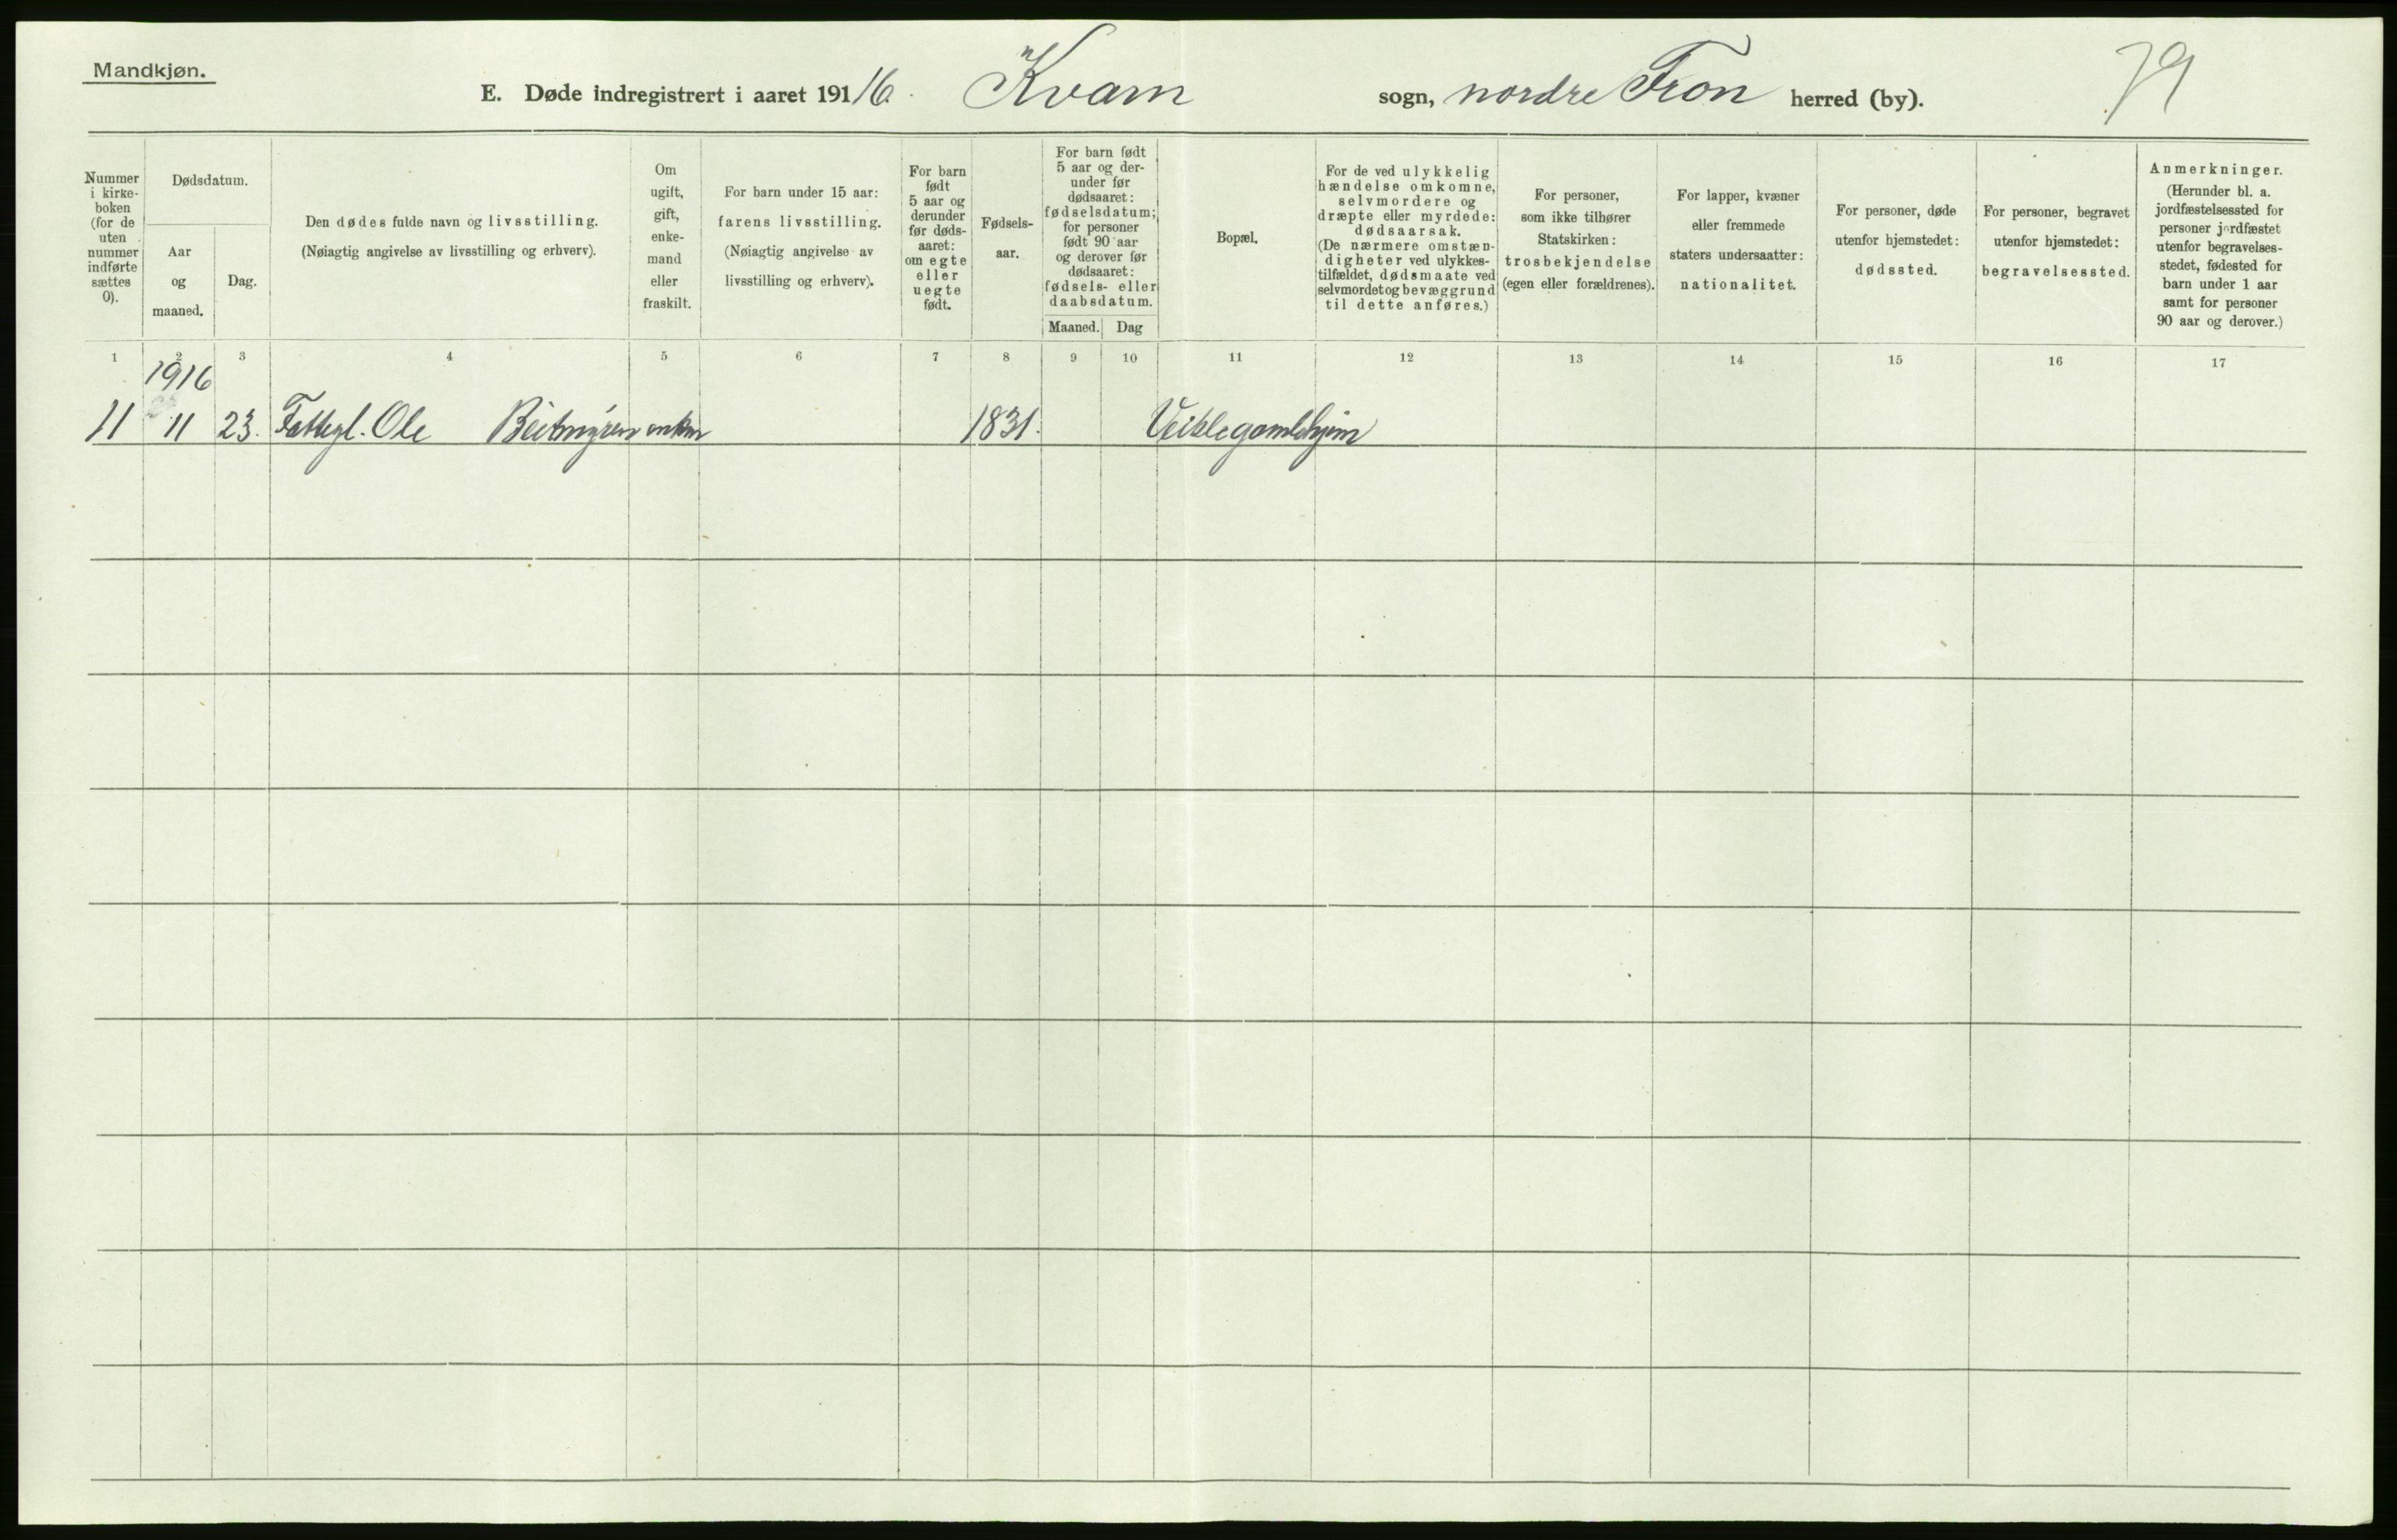 Mandkjøn.
E. Døde indregistrert i aaret 191 16. Kvam sogn, nordre Fron herred (by).
79
Nummer i kirke- boken (for de uten nummer indførte sættes 0).
Dødsdatum.
Aar og maaned.
Dag.
Den dødes fulde navn og livsstilling.
(Nøiagtig angivelse av livsstilling og erhverv).
Om ugift, gift, enke- mand eller fraskilt.
For barn under 15 aar: farens livsstilling.
(Nøiagtig angivelse av livsstilling og erhverv).
For barn født 5 aar og derunder før døds- aaret: om egte eller uegte født.
Fødsels- aar.
For barn født 5 aar og der- under før dødsaaret: fødselsdatum; for personer født 90 aar og derover før dødsaaret: fødsels- eller daabsdatum.
Maaned.
Dag
Bopæl.
For de ved ulykkelig hændelse omkomne, selvmordere og dræpte eller myrdede: dødsaarsak.
(De nærmere omstæn- digheter ved ulykkes- tilfældet, dødsmaate ved selvmordet og bevæggrund til dette anføres.)
For personer, som ikke tilhører Statskirken: trosbekjendelse (egen eller forældrenes).
For lapper, kvæner eller fremmede staters undersaatter: nationalitet.
For personer, døde utenfor hjemstedet: dødssted.
For personer, begravet utenfor hjemstedet: begravelsessted.
Anmerkninger.
(Herunder bl. a. jordfæstelsessted for personer jordfæstet utenfor begravelses- stedet, fødested for barn under 1 aar samt for personer 90 aar og derover.)
1 2 3 4 5 6 7 8 9 10 11 12 13 14 15 16 17
1916
11 11 23. Fattegl. Ole Beitmyren enkm 1831. Veiklegamlehjem